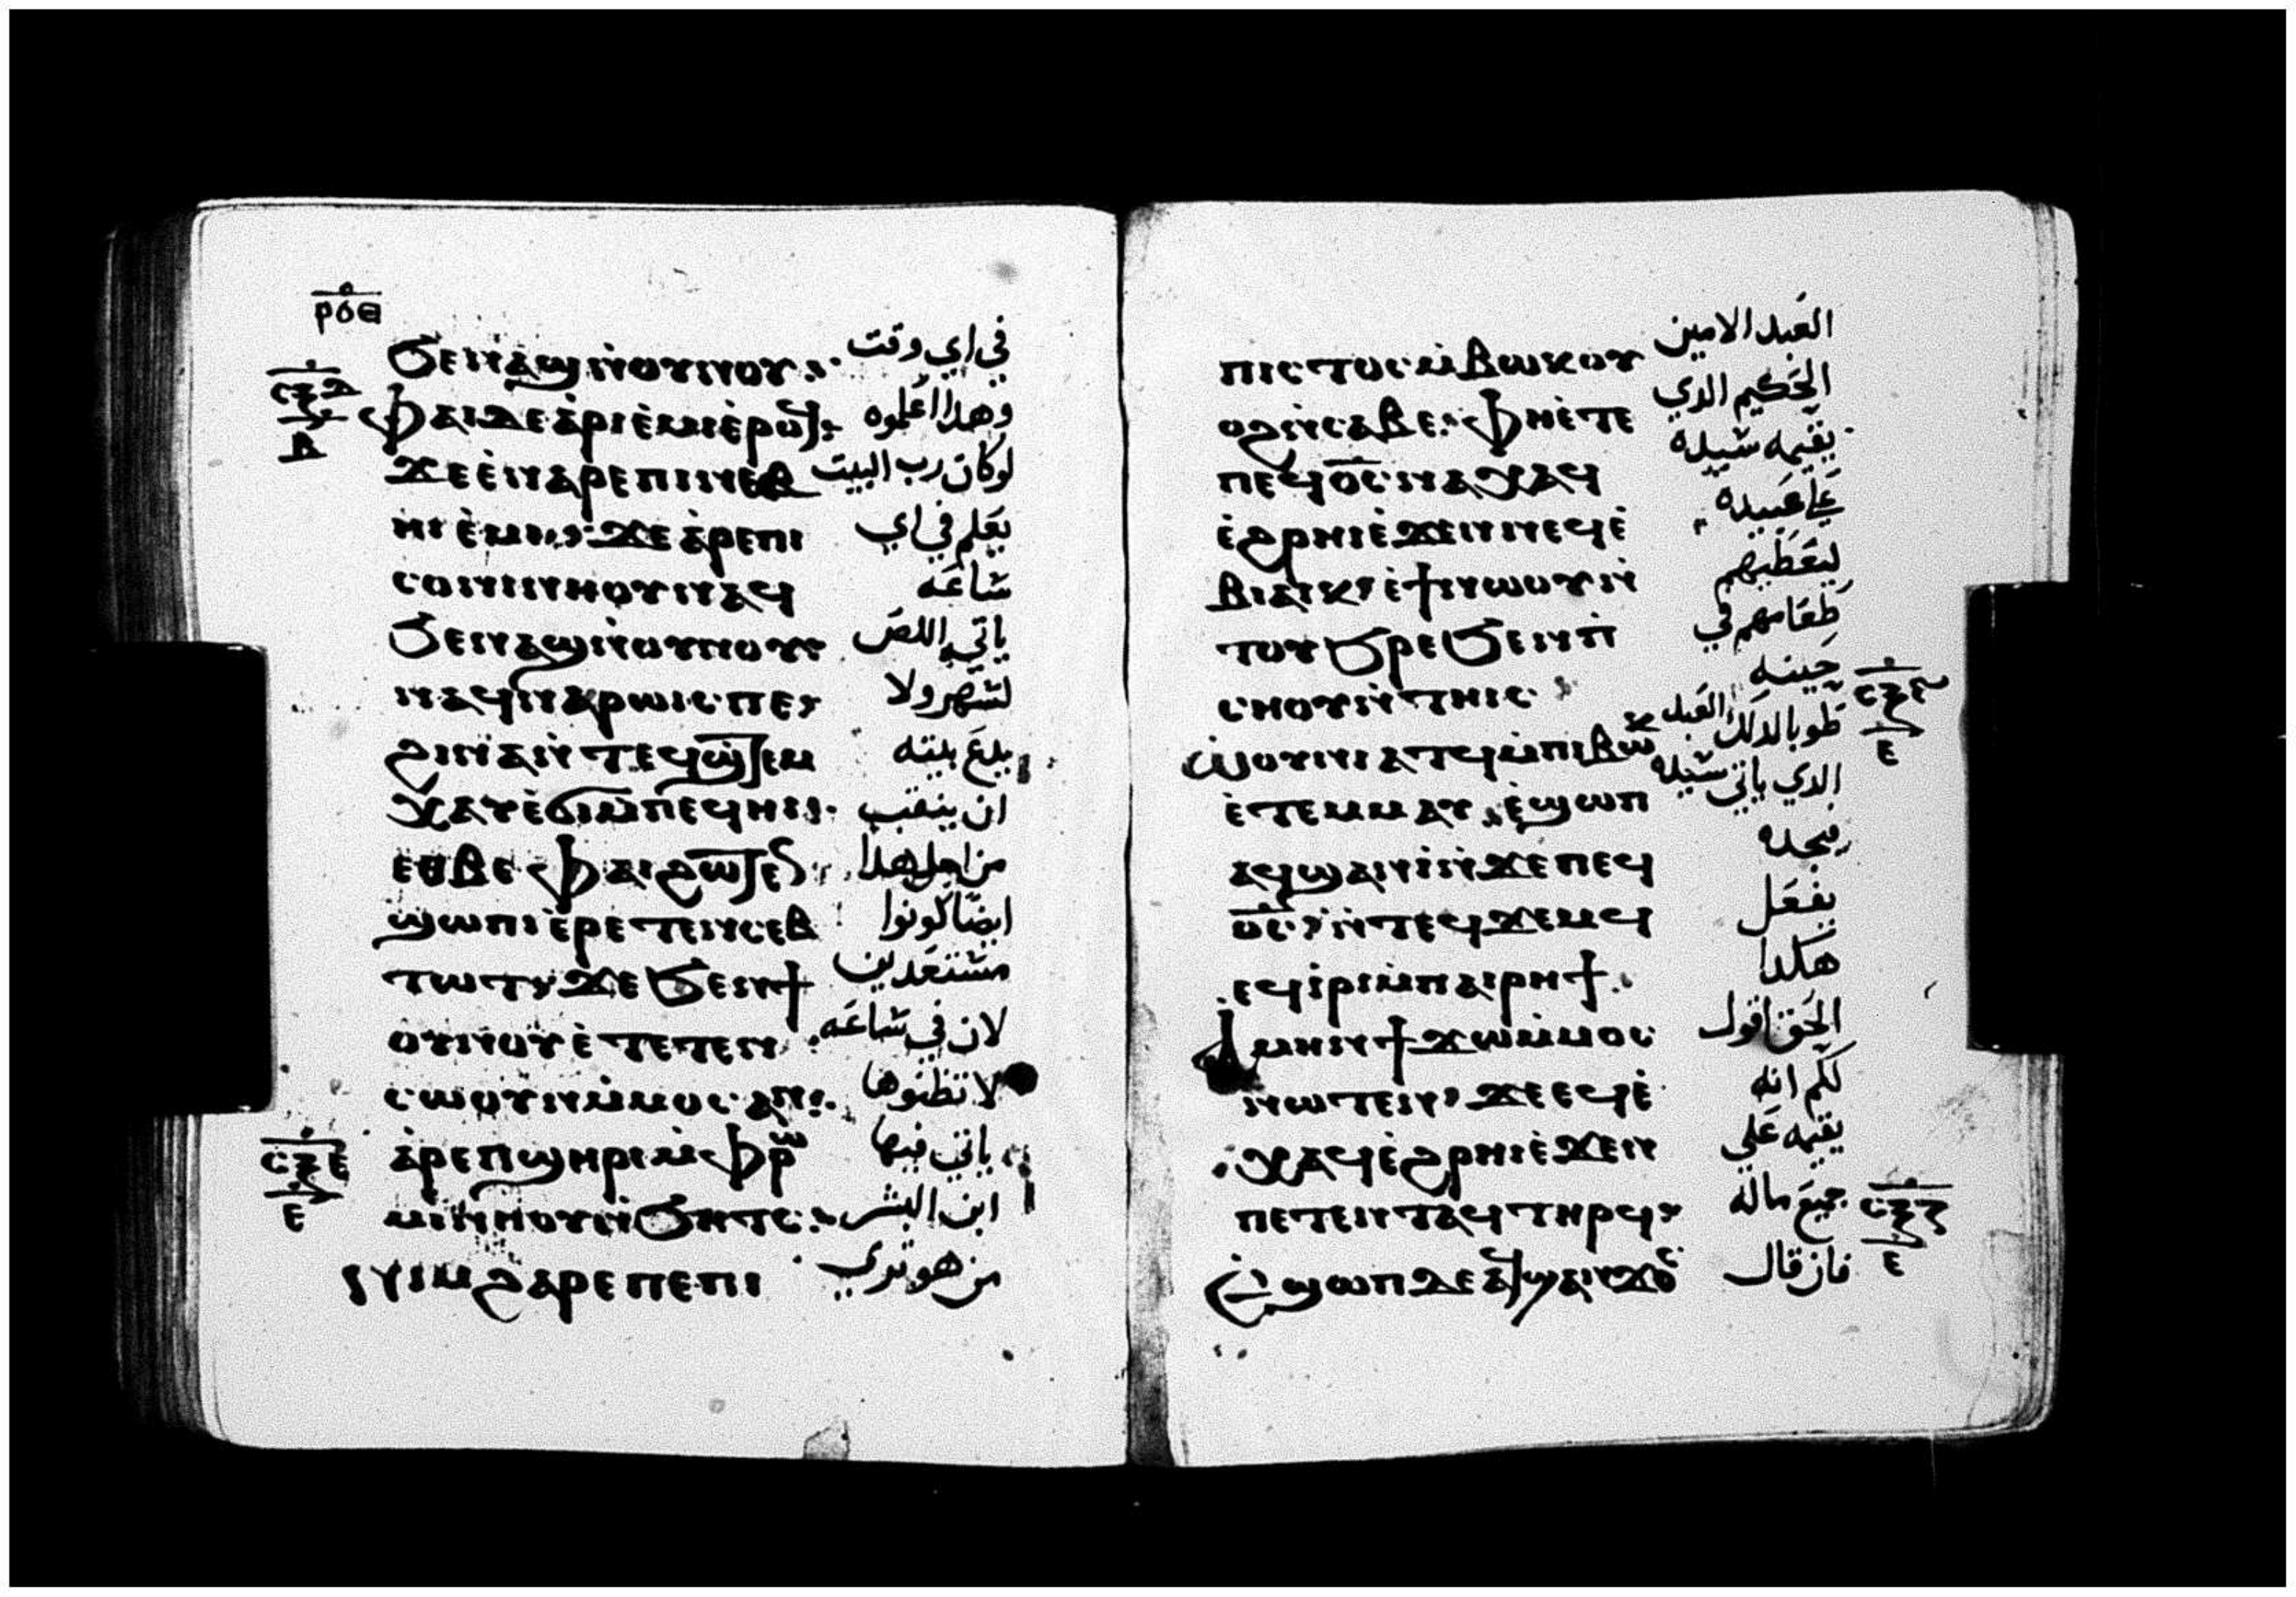 ⲣⲟⲑ
ϧⲉⲛⲁϣⲛ̇ⲟⲩⲛⲟⲩ في اي وقت
ⲫⲁⲓⲇⲉⲁ̇ⲣⲓⲉ̇ⲙⲓⲉ̇ⲣⲟϥ وهدا اعلموه
ϫⲉⲉ̇ⲛⲁⲣⲉⲡⲓⲛⲉⲃ لوكان رب البيت
ⲏⲓ ⲉ̇ⲙⲓ ϫⲉ ⲁ̇ⲣⲉⲡⲓ يعلم في اي
ⲥⲟⲛⲓⲛⲏⲟⲩⲛⲁϥ شاعه
ϧⲉⲛⲁϣⲛ̇ⲟⲩⲛⲟⲩ ياتي اللص
ⲛⲁϥⲛⲁⲣⲱⲓⲥⲡⲉ لشهر ولا
ϩⲓⲛⲁⲛ̇ⲧⲉϥϣ̇ⲧⲉⲙ يدع بيته
ⲭⲁⲩⲉ̇ϭⲓⲙ̇ⲡⲉϥⲏⲓ ان ينقب
ⲉⲑⲃⲉ ⲫⲁⲓϩⲱⲧⲉⲛ من اجل هدا
ϣⲱⲡⲓⲉ̇ⲣⲉⲧⲉⲛⲥⲉⲃ ايضا كونوا
ⲧⲱⲧ ϫⲉϧⲉⲛϯ مشتعدين
ⲟⲩⲛⲟⲩ ⲉ̇ⲧⲉⲧⲉⲛ لان في شاعه
ⲥⲱⲟⲩⲛⲙ̇ⲙⲟⲥⲁⲛ لا تظنوها
ⲁ̇ⲣⲉⲡϣⲏⲣⲓⲙ̇ⲫⲣⲱ ياتي فيها
ⲙⲓⲛⲏⲟⲩⲛ̇ϧⲏⲧⲥ ابن البشر
ⲛⲓⲙϩⲁⲣⲉⲡⲉⲡⲓ من هو تري
ⲥⲝⲇ
ⲃ
ⲥⲝⲉ
ⲉ
ⲡⲓⲥⲧⲟⲥⲙ̇ⲃⲱⲕⲟⲩ العبد الامين
ⲟϩⲛ̇ⲥⲁⲃⲉ ⲫⲏⲉ̇ⲧⲉ الحكيم الدي
ⲡⲉϥⲟ̅ⲥ̅ⲛⲁⲭⲁϥ يقيمه شيده
ⲉ̇ϩⲣⲏⲓⲉ̇ϫⲉⲛⲛⲉϥⲉ̇ علي عبيده
ⲃⲓⲁⲓⲕ ⲉ̇ϯⲛⲱⲟⲩⲛ̇ ليعطيهم
ⲧⲟⲩϧⲣⲉϧⲉⲛⲡ̇ طعامهم في
ⲥⲏⲟⲩⲛ̇ⲧⲏⲓⲥ حينه
ⲱ̇ⲟⲩⲛⲓⲁⲧϥⲙ̇ⲡⲓⲃⲱⲕ طوبا لدلك العبد
ⲉ̇ⲧⲉⲙⲙⲁⲩ ⲉ̇ϣⲱⲡ الدي ياتي شيده
ⲁϥϣⲁⲛⲓ̇ⲛ̇ϫⲉⲡⲉϥ فيجده
ⲟ̅ⲥ̅ ⲛ̇ⲧⲉϥϫⲉⲙϥ يفعل
ⲉϥⲓ̇ⲣⲓⲙ̇ⲡⲁⲓⲣⲏϯ هكدا
ⲁⲙⲏⲛϯϫⲱⲙ̇ⲙⲟⲥ الحق اقول
ⲛⲱⲧⲉⲛ ϫⲉⲉϥⲉ̇ لكم انه
ⲭⲁϥⲉ̇ϩⲣⲏⲓⲉ̇ϫⲉⲛ يقيمه علي
ⲡⲉⲧⲉⲛⲧⲁϥⲧⲏⲣϥ جميع ماله
ⲉ̇ϣⲱⲡⲇⲉⲁϥϣⲁⲛϫⲟⲥ فان قال
ⲥⲝⲋ
ⲉ
ⲥⲝⲍ
ⲉ